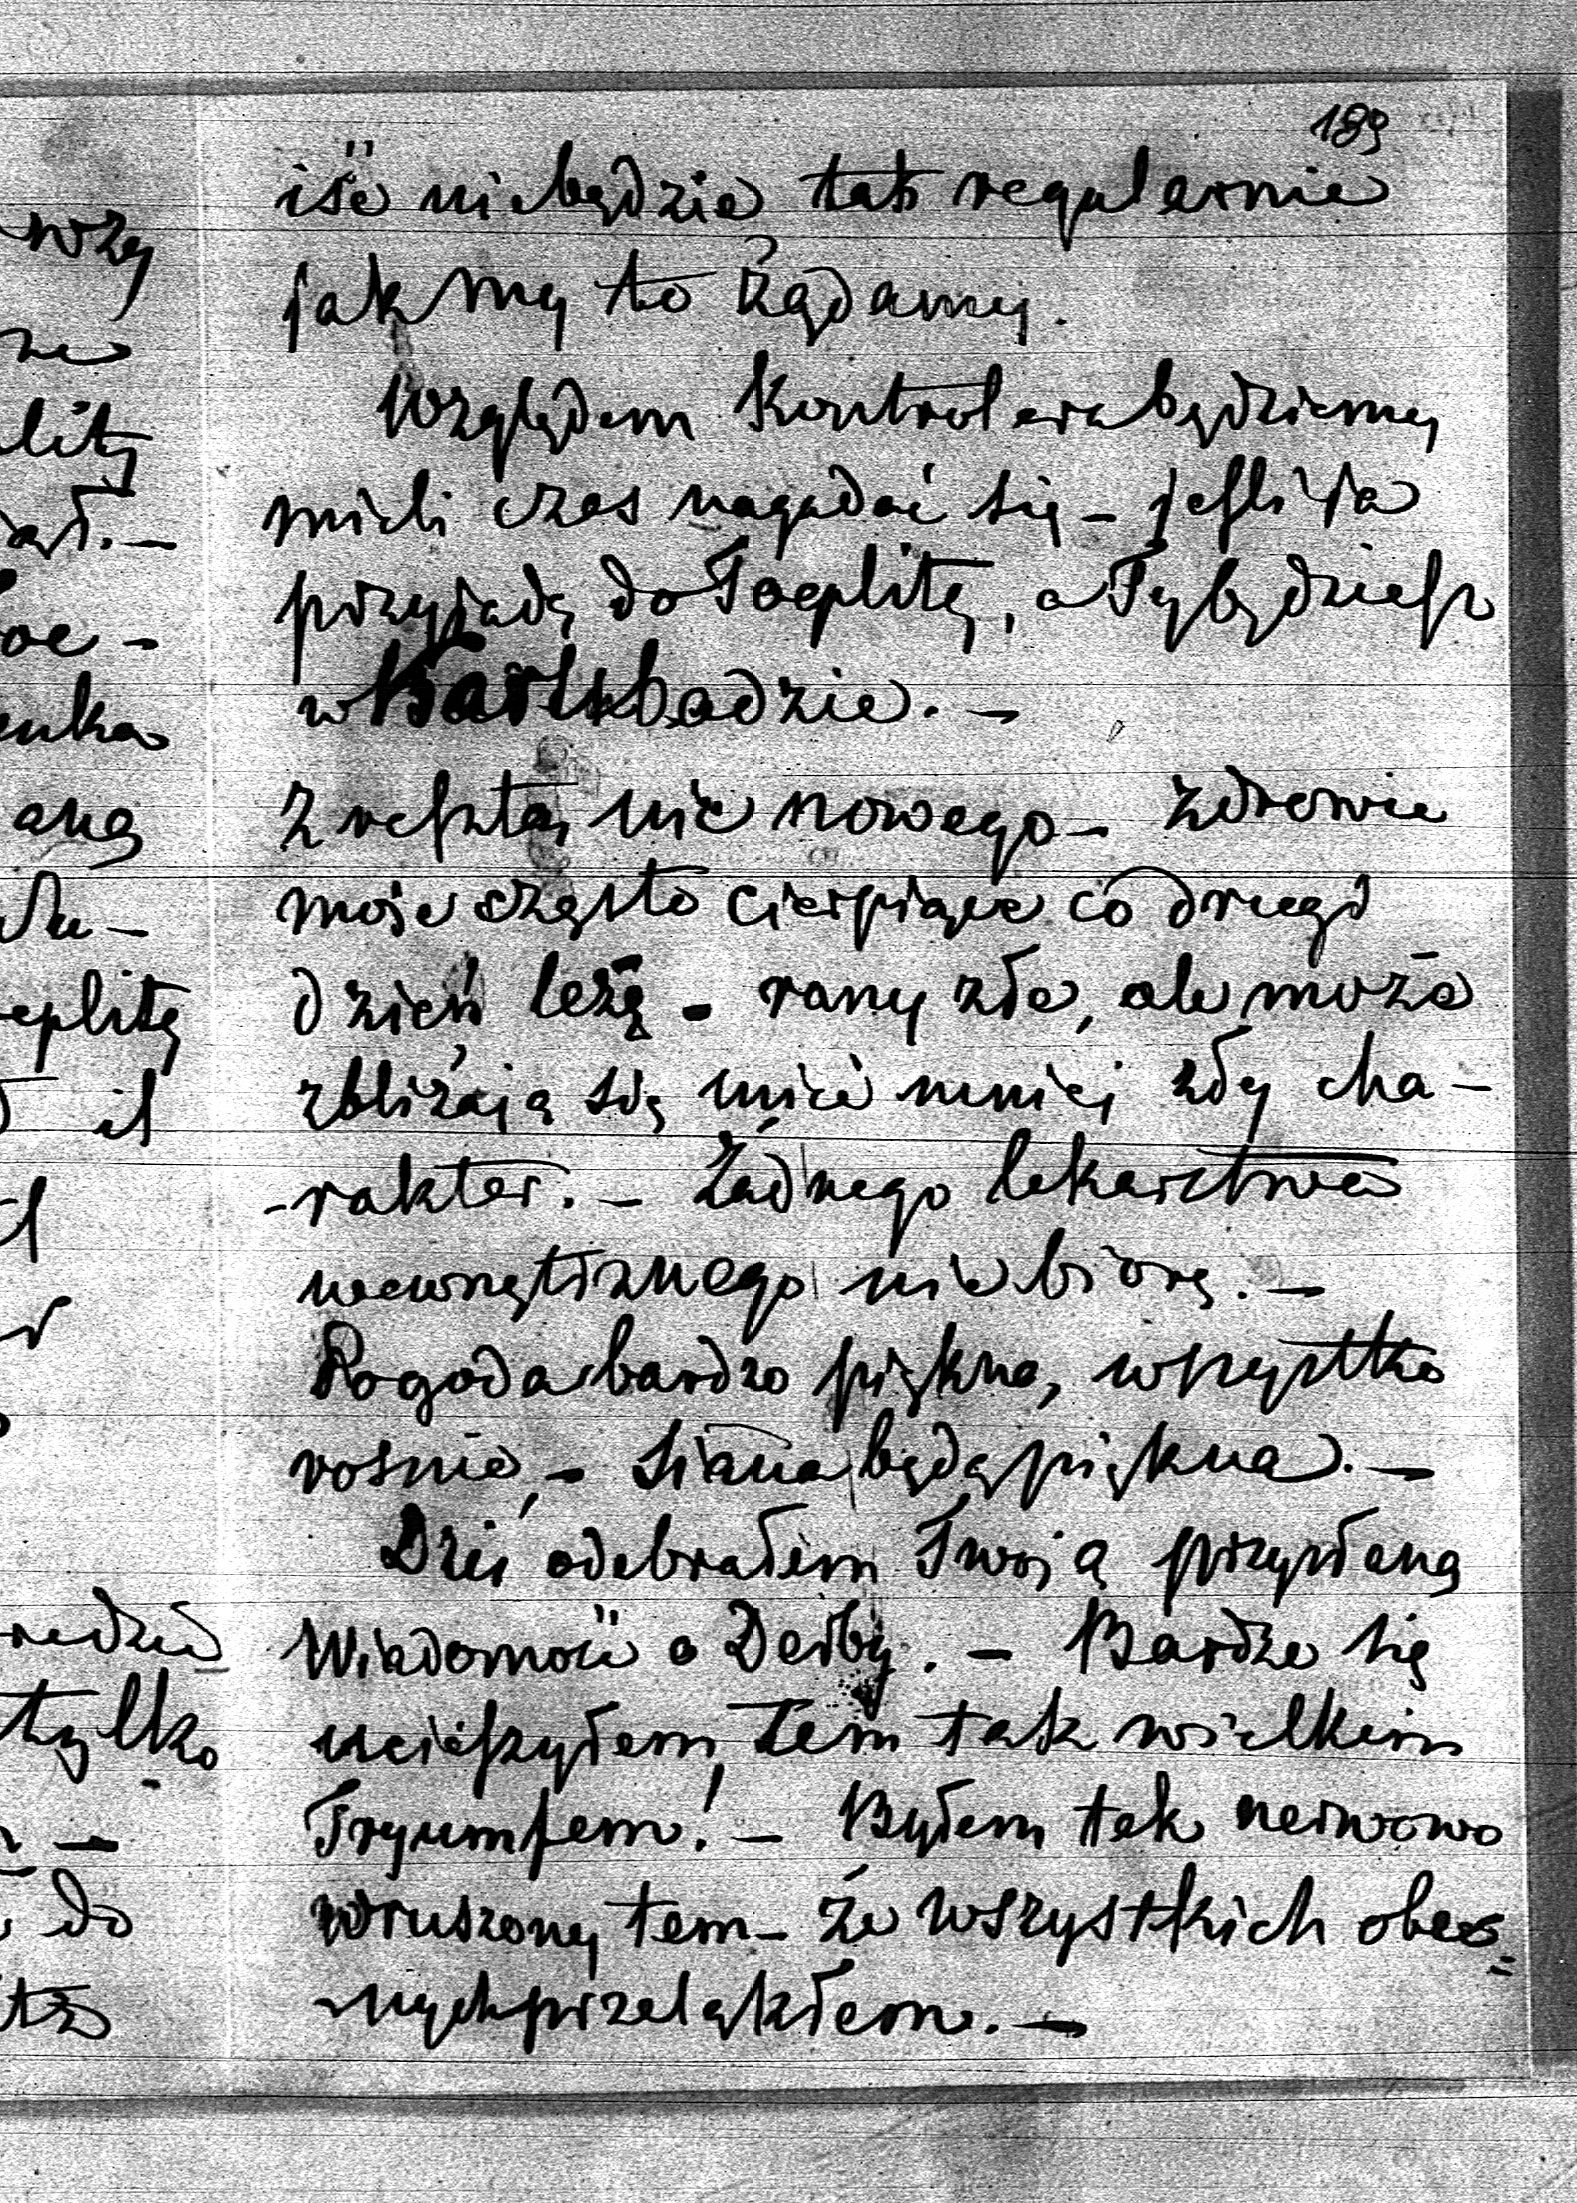 189
iść nie będzie tak regularnie
jak my to żądamy.
Względem Kontrolera będziemy
mieli czas nagadać się – jeśli ja
przyjadę do Toeplitz, a Ty będziesz
w Karlsbadzie. –
Z resztą nic nowego – zdrowie
moje często cierpiące co drugi
dzień leżę – rany złe, ale może
zbliżają się mieć mniej zły cha–
–rakter. – Żadnego lekarstwa
wewnętrznego nie biorę. –
Pogoda bardzo piękna, wszystko
rośnie, – siana będą piękna. –
Dziś odebrałem Twoją przysłaną
Wiadomość o Derby. – Bardzo się
ucieszyłem tem tak wielkim
Tryumfem! – Byłem tak nerwowo
wzruszony tem – że wszystkich obec=
nych przelękłem. –
wzy
ne
litz
ał. –
oe –
enka
aną
eplitz
il
redzie
tylko
do